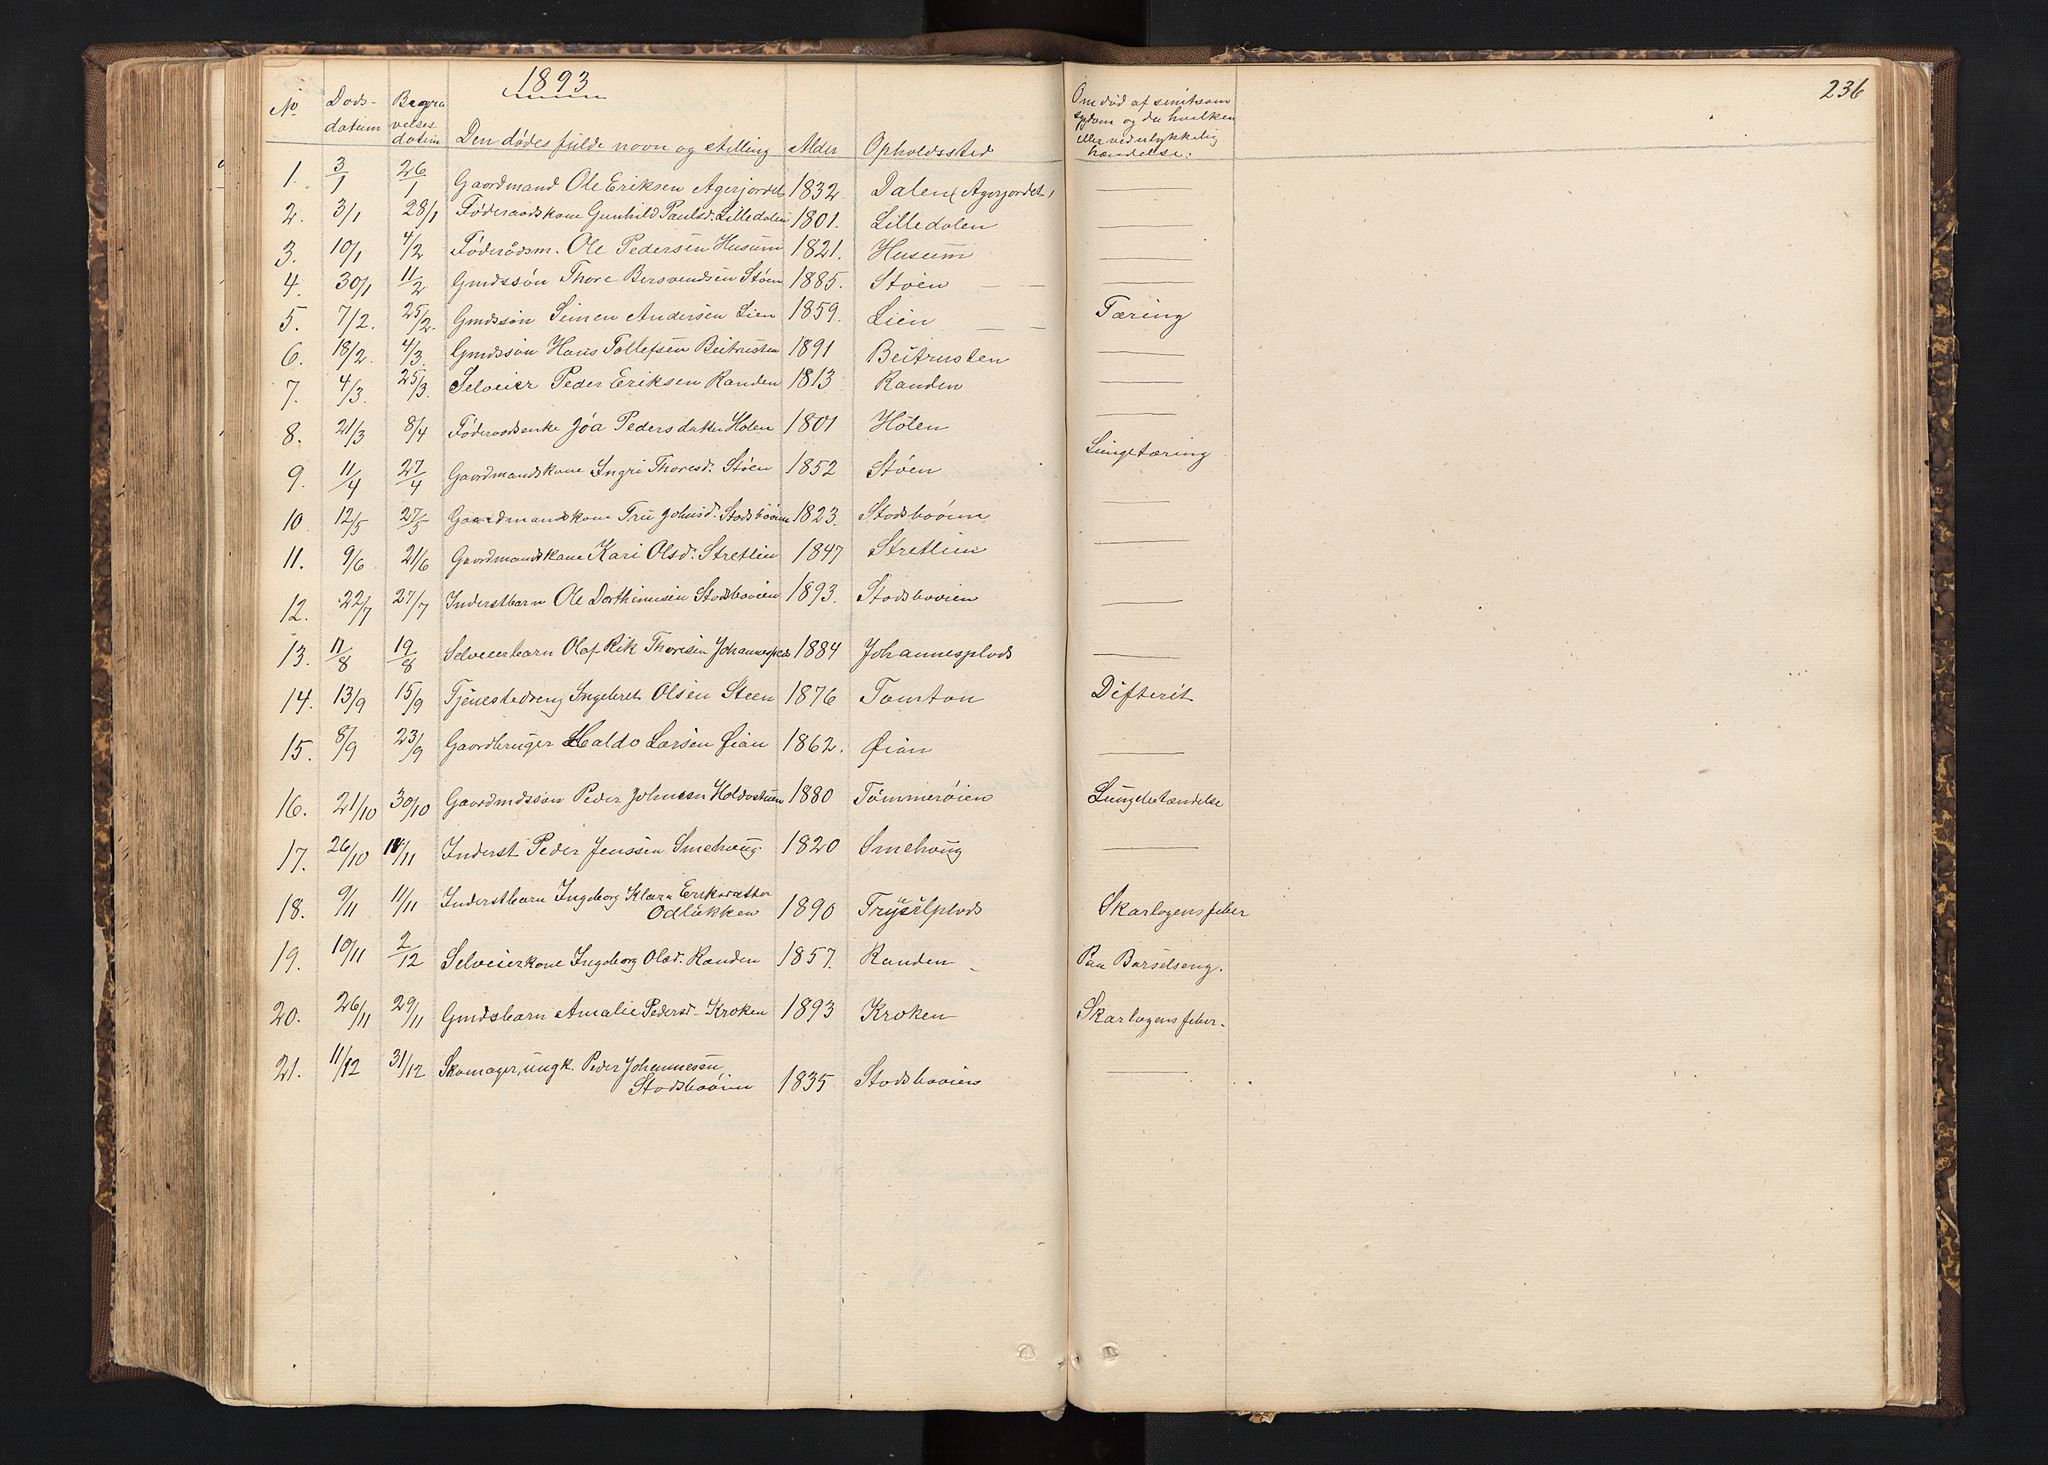 1893
236
No Døds- datum Begravelsesdatum Den dødes fulde navn og stilling Alder Opholdssted Om død af smitsom sygdom og da hvilken eller ved ulykkelig hændelse.
1. 3/1 26/1 Gaardmand Ole Eriksen Agerjordet 1832. Dalen (Agerjordet) —
2. 3/1 28/1 Føderaadskone Gunhild Paulsd. Lilledalen 1801. Lilledalen —
3. 10/1 4/2 Føderådsm. Ole Pedersen Husum 1821. Husum —
4. 30/1 11/2 Gmdssøn Thore Bersvendsen Støen 1885. Støen — — —
5. 7/2. 25/2. Gmdssøn Simen Andersen Lien 1859. Lien — — Tæring
6. 18/2. 4/3. Gmdssøn Hans Tollefsen Beitrusten 1891 Beitrusten —
7. 4/3. 25/3. Selveier Peder Eriksen Randen 1813 Randen —
8. 21/3 8/4 Føderaadsenke Jøa Pedersdatter Holen 1801 Holen
9. 11/4 27/4 Gaardmandskone Ingri Thoresd. Støen 1852 Støen Lungetæring
10. 12/5 27/5 Gaardmandskone Fru Johnsd. Stodsbøøien 1823. Stodsbøøien —
11. 9/6 21/6 Gaardmandskone Kari Olsd. Stretlien 1847 Stretlien —
12. 22/7 27/7 Inderstbarn Ole Dorthinusen Stodsbøvien 1893. Stodsbovien —
13. 11/8 19/8 Selveierbarn Olaf Rik Thoresen Johannesplads 1884 Johannesplads —
14. 13/9 15/9 Tjenestedreng Ingebret Olsen Steen 1876 Tomton Difterit
15. 8/9 23/9 Gaardbruger Haldo Larsen Øian 1862. Øian —
16. 21/10 30/10 Gaardmdssøn Peder Johnsen Holdostuen 1880 Tømmerøien Lungebetændelse
17. 26/10 11/11 Inderst Peder Jenssen Smehoug. 1820 Smehoug —
18. 9/11 11/11 Inderstbarn Ingeborg Klara Eriksdatter
Odlükken 1890 Trysilplads Skarlagensfeber
19. 10/11 2/12 Selveierkone Ingeborg Olsd. Randen 1857. Randen - Paa Barselseng.
20. 26/11 29/11 Gmdsbarn Amalie Pedersd. Kroken 1893 Kroken Skarlagensfeber.
21. 11/12 31/12 Skomager, ungk. Peder Johannessen
Stodsbøøien 1835 Stodsbovien —